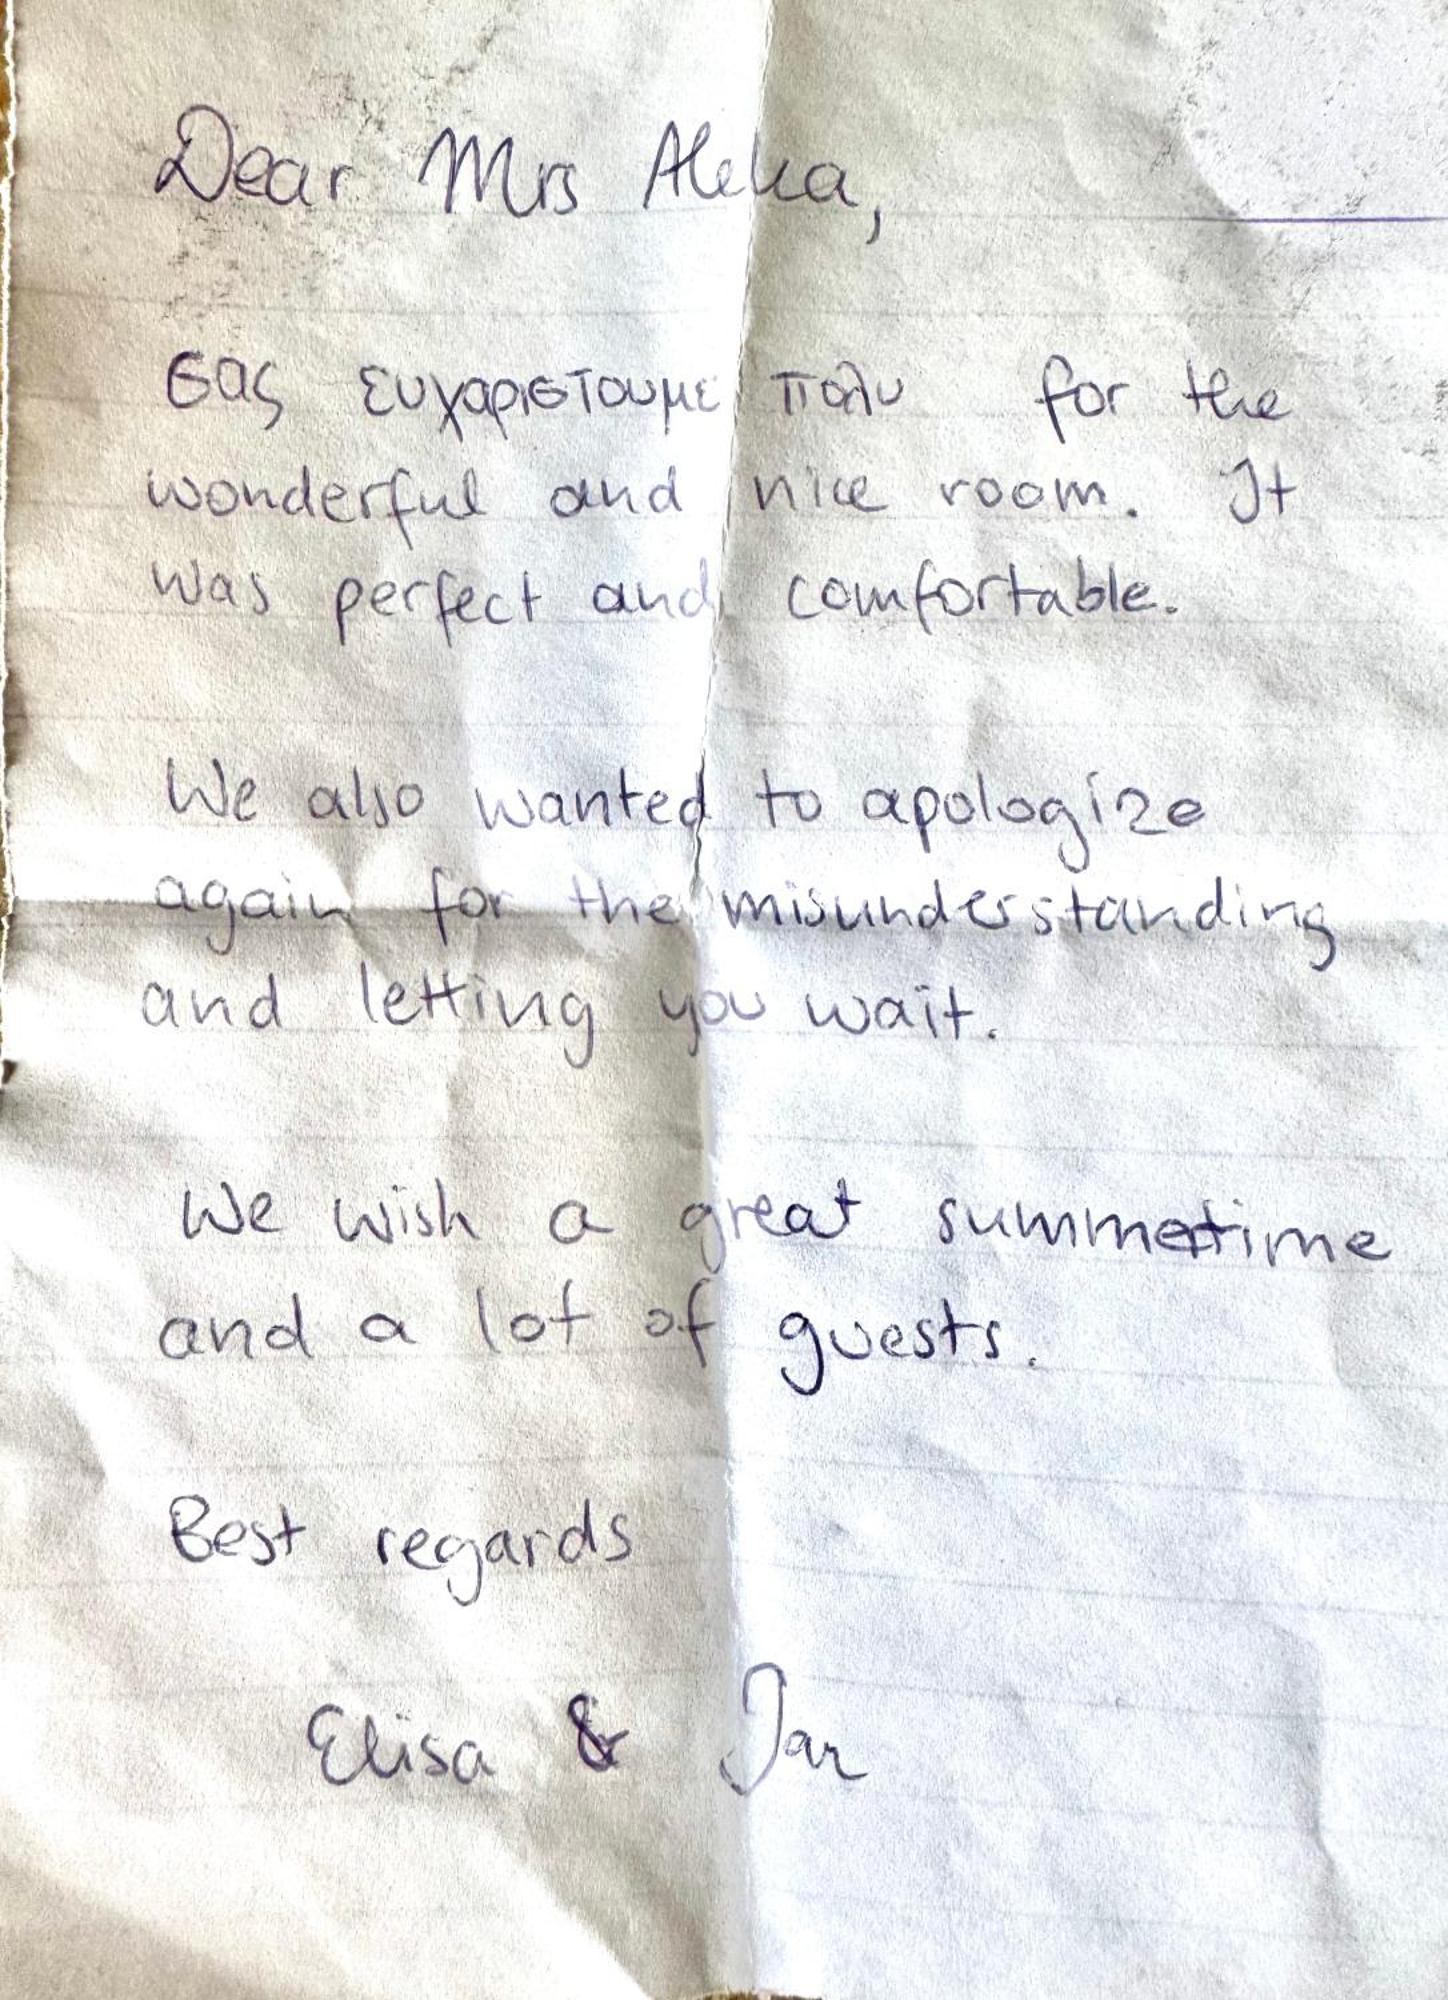 Dear Mrs Aleka,
σας ευχαριστουμε πολυ for the
wonderful and nice room. It
was perfect and comfortable.
We also wanted to apologize
again for the misunderstanding
and letting you wait.
We wish a great summertime
and a lot of guests.
Best regards
Elisa & Jan